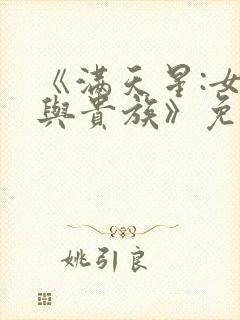 《滿天星:女
與貴族》免
姚引良